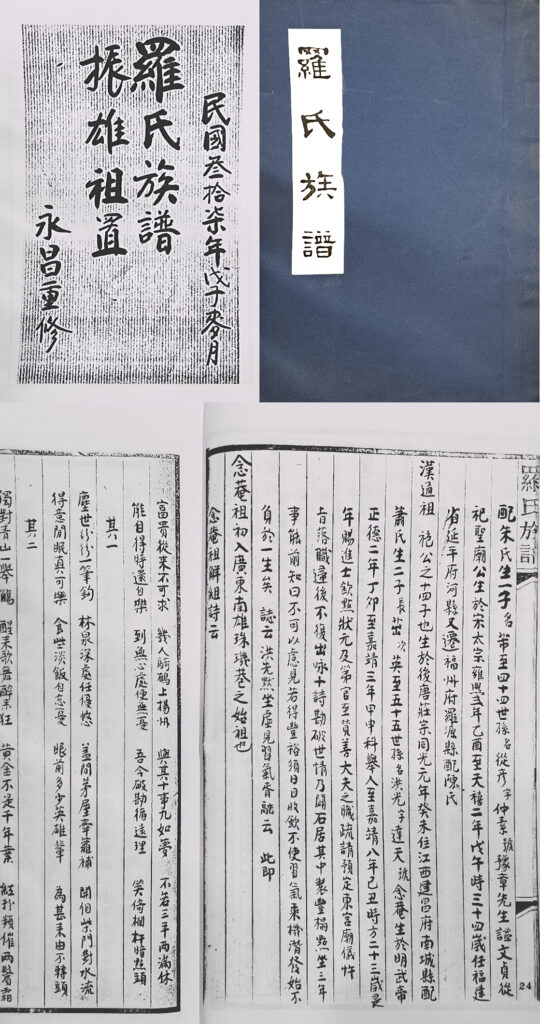 民國叁拾柒年戊子麥月
羅氏族譜
振雄祖置
永昌重修
羅氏族譜
羅氏族譜
24
配朱氏生一子名 芾至四十四世孫名從彥字仲素號豫章先生謚文貞從
祀聖廟公生於宋太宗雍熙弍年乙酉至天禧二年戊午時三十四歲任福建
省延平府河縣又遷福州府羅源縣配陳氏
漢通祖 公之十四子也生於後唐莊宗同光元年癸未住江西建昌府南城縣配
蕭氏生二子長 次英至五十五世孫名洪光字達天號念菴生於明武帝
正德二年丁卯至嘉靖三年甲申科舉人至嘉靖八年己丑時方二十三歲是
年賜進士欽點狀元及第官至贊善大夫之職疏請預定東宮廟儀忤
旨落職還後不復出咏十詩勘破世情乃闢石居其中製豐榻點坐三年
事能前知曰不可以意見若得豐裕須日日收飲不使習氣乘機潛發始不
負於一生矣 誌云洪先默坐虛見習氣消融云 此即
念菴祖初入廣東南雄珠璣巷之始祖也
念菴祖解組詩云
富貴從來不可求 幾人騎鶴上揚州 與其十事九如夢 不若三平兩滿休
能自得時還自樂 到無心處便無憂 吾今破勘循遠理 笑倚欄杆暗點頭
其一
塵世紛紛一筆鈎 林泉深處任優悠 蓋間茅屋牽蘿補 開個柴門對水流
得意閒眠真可樂 食些淡飯自忘憂 眼前多少英雄輩 為甚來由不轉頭
其二
獨對青山一舉觴 醒來歌舞醉來狂 黃金不是千年業 紅粉類催兩鬢霜